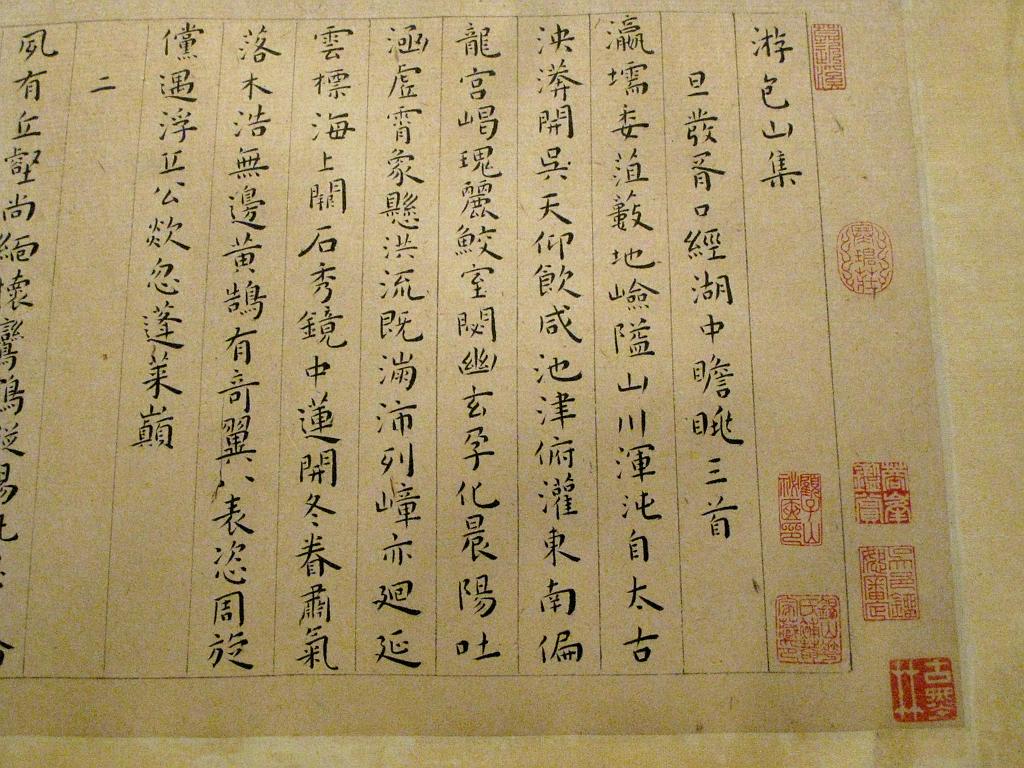 游包山集
旦發胥口經湖中瞻眺三首
瀛壖委菹藪地嶮隘山川渾沌自太古
泱漭開吳天仰飲咸池津俯灌東南偏
龍宮瑰麗鮫室閟幽玄孕化晨陽吐
涵虛霄象懸洪流既滿沛列嶂亦廻延
雲標海上闕石秀鏡中蓮開冬眷肅氣
落木浩無邊黃鵠有奇翼八表恣周旋
儻遇浮丘公欻忽蓬萊巔
二
夙有丘壑尚緬懷鸞鶴